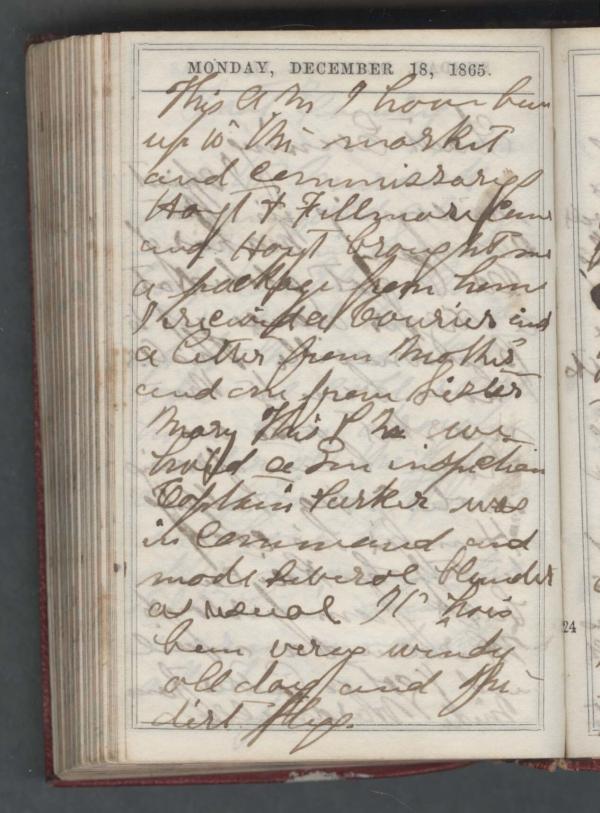 MONDAY, DECEMBER 18, 1865.
This A M I have been
up to the market
and Commissary
Hoyt & Fillmore came
and Hoyt brought me
a package from home
I received a Courier and
a letter from Mother
and one from Sister
Mary This P M we
had a Gun inspection
Captain Parker was
in Command and
made several blunder
as usual It has
been very windy
all day and the
dirt flys.
24